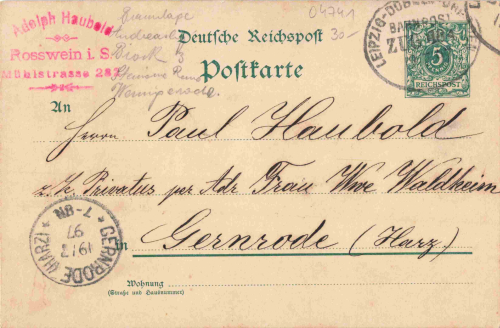 Adolph Haubold
Rosswein i. S.
Mühlstrasse 28
Eremitage
Andreasb
Brock
Steinerne Renne
04741
30-
Deutsche Reichspost
Postkarte
LEIPZIG-DÖBELN-DR
BAHNPOST
ZUG
5
REICHSPOST
An
Herrn Paul Haubold
z. Zt. Privatus per Adr Frau Wwe Waldheim
in Gernrode (Harz.)
GERNRODE (HARZ)
19/7
97
7-8N
Wohnung
(Straße und Hausnummer)